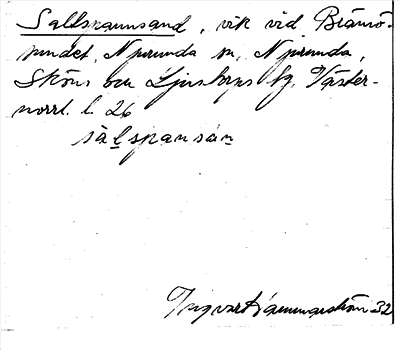 Sallsrannsand, vik vid Brämö-
sundet, Njurunda sn, Njurunda,
Sköns och Ljustorps hg, Väster-
norrl. l. 26
sàlspansán
Ingvar Hammarström 32